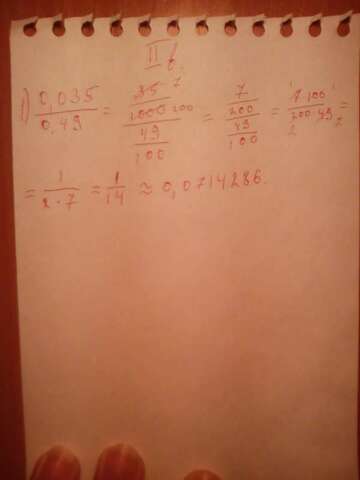 II в.
1) 0,035/0,49 = (35 7/1000 200)/(49/100) = (7/200)/(49/100) = (1 7·100 1)/(2 200·49 7) =
= 1/(2·7) = 1/14 ≈ 0,0714286.